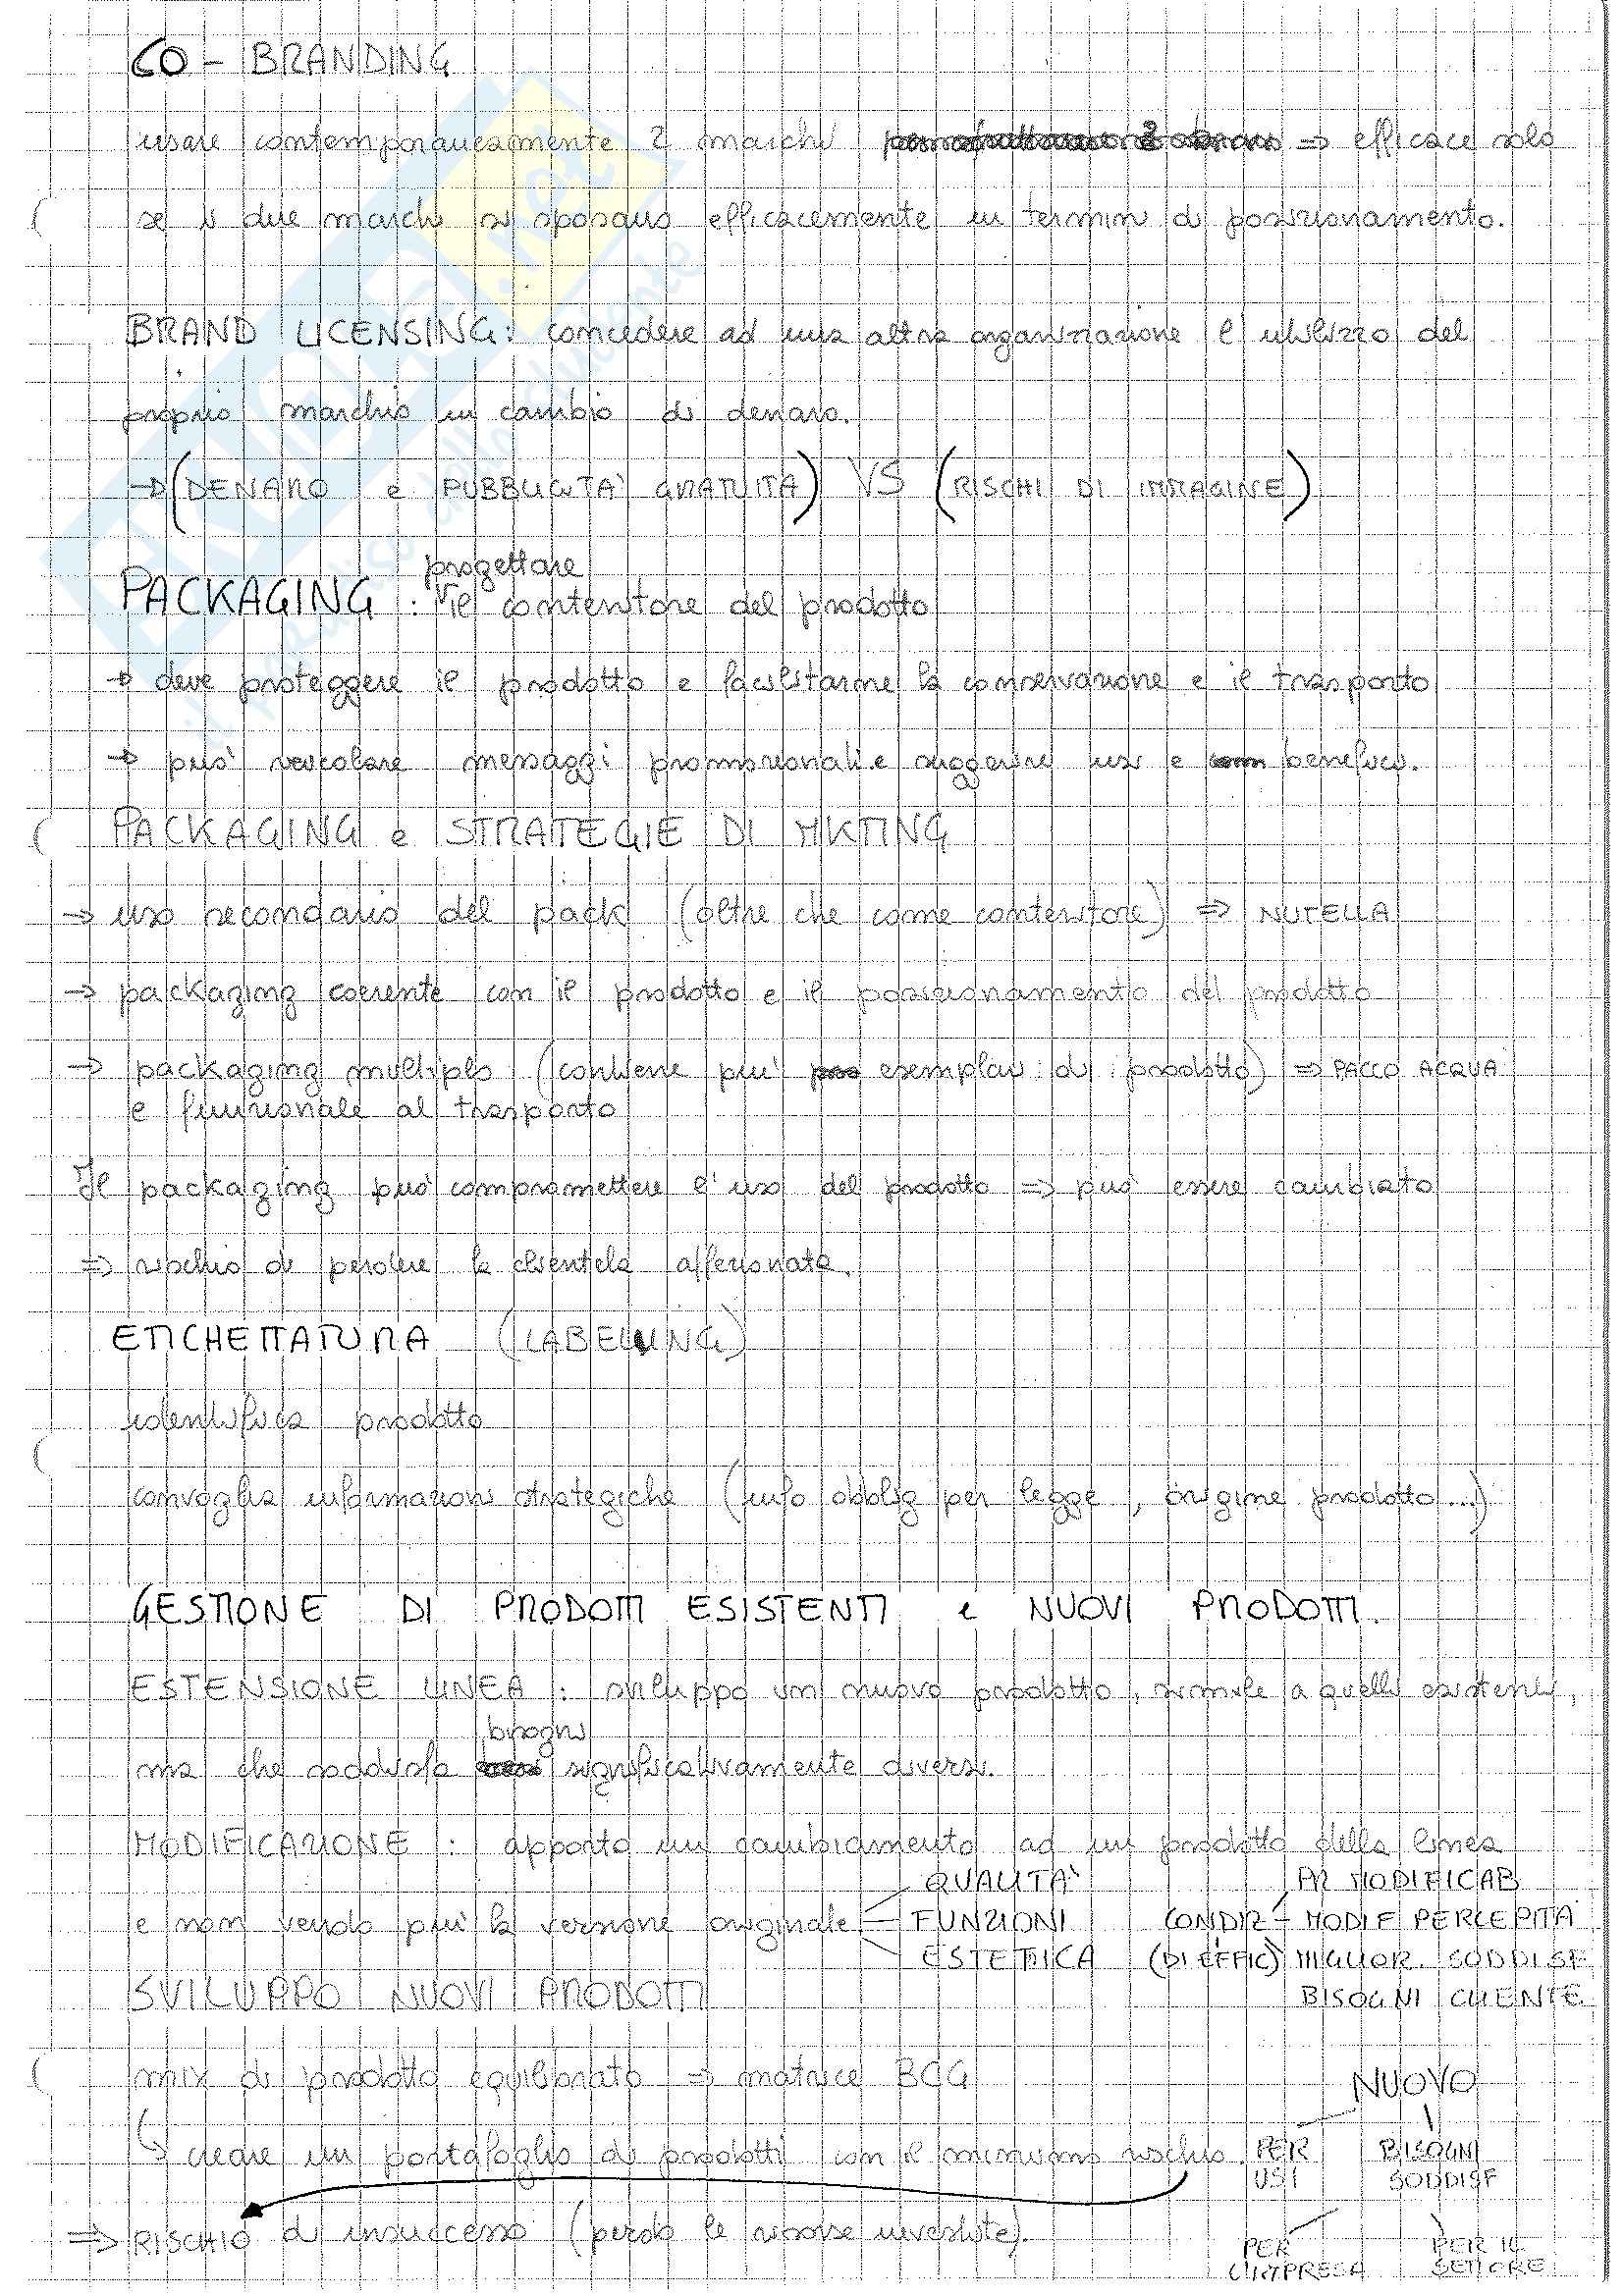 CO - BRANDING
usare contemporaneamente 2 marchi ⇒ efficace solo
se i due marchi si sposano efficacemente in termini di posizionamento.
BRAND LICENSING: concedere ad una altra organizzazione l'utilizzo del
proprio marchio in cambio di denaro.
→ (DENARO e PUBBLICITÀ GRATUITA) VS (RISCHI DI IMMAGINE)
progettare
PACKAGING : il contenitore del prodotto
→ deve proteggere il prodotto e facilitarne la conservazione e il trasporto
→ può veicolare messaggi promozionali e suggerire usi e benefici.
PACKAGING e STRATEGIE DI MKTING
→ uso secondario del pack (oltre che come contenitore) ⇒ NUTELLA
→ packaging coerente con il prodotto e il posizionamento del prodotto
→ packaging multiplo (contiene più esemplari di prodotto) ⇒ PACCO ACQUA
e funzionale al trasporto
Il packaging può compromettere l'uso del prodotto ⇒ può essere cambiato
⇒ rischio di perdere la clientela affezionata.
ETICHETTATURA (LABELLING)
identifica prodotto
convoglia informazioni strategiche (info obblig per legge, origine prodotto...)
GESTIONE DI PRODOTTI ESISTENTI e NUOVI PRODOTTI.
ESTENSIONE LINEA : sviluppo un nuovo prodotto, simile a quelli esistenti,
bisogni
ma che soddisfa significativamente diversi.
MODIFICAZIONE : apporto un cambiamento ad un prodotto della linea
QUALITÀ PR MODIFICAB
e non vendo più la versione originale FUNZIONI CONDIZ - MODIF PERCEPITA
ESTETICA (DI EFFIC) MIGLIOR. SODDISF
SVILUPPO NUOVI PRODOTTI BISOGNI CLIENTE
mix di prodotto equilibrato ⇒ matrice BCG
NUOVO
↳ creare un portafoglio di prodotti con il minimo rischio. PER BISOGNI
USI SODDISF
⇒ RISCHIO di insuccesso (perdo le risorse investite).
PER PER IL
L'IMPRESA SETTORE